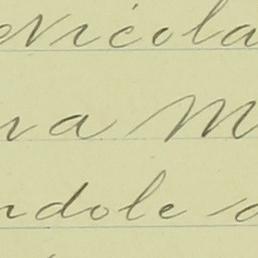 Nicola
na M
ndole